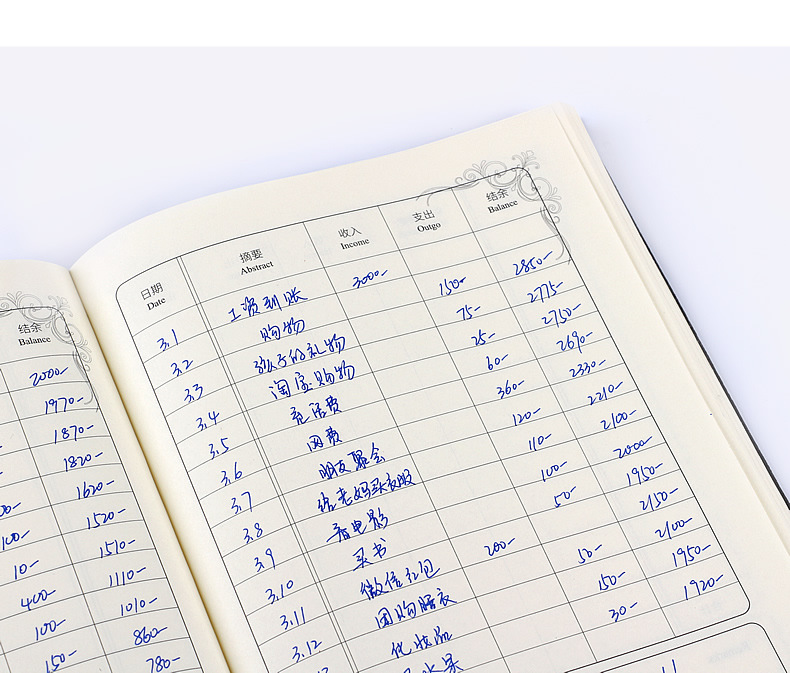 结余
Balance
2000-
1970-
1870-
1820-
1620-
100- 1520-
10- 1510-
400- 1110-
100- 1010-
150- 860-
780-
日期 摘要 收入 支出 结余
Date Abstract Income Outgo Balance
3.1 工资到账 3000-
3.2 购物 150- 2850-
3.3 孩子的礼物 75- 2775-
3.4 淘宝购物 25- 2750-
3.5 充话费 60- 2690-
3.6 网费 360- 2330-
3.7 朋友聚会 120- 2210-
3.8 给老妈买衣服 110- 2100-
3.9 看电影 100- 2000-
3.10 买书 50- 1950-
3.11 微信红包 200- 2150-
3.12 团购睡衣 50- 2100-
化妆品 150- 1950-
水果 30- 1920-